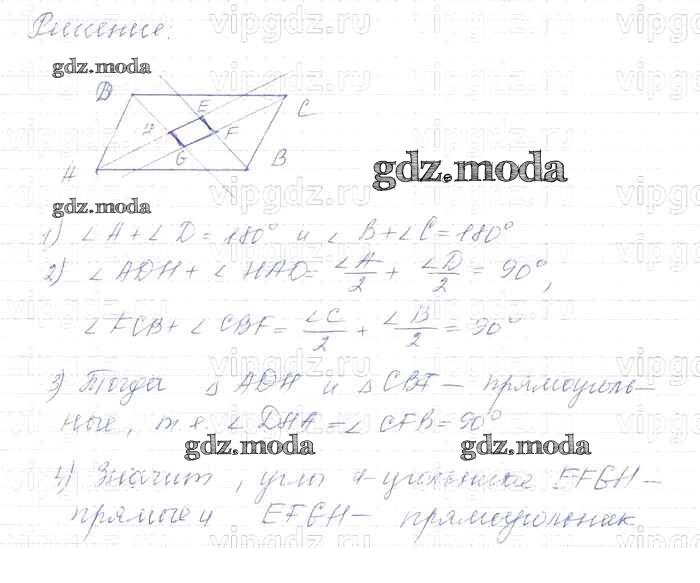 Решение:
gdz.moda
D
C
E
H
F
G
A
B
gdz.moda
gdz.moda
1) ∠A + ∠D = 180° и ∠B + ∠C = 180°
2) ∠ADH + ∠HAD = ∠A/2 + ∠D/2 = 90°,
∠FCB + ∠CBF = ∠C/2 + ∠B/2 = 90°
3) Тогда △ADH и △CBF — прямоуголь-
ные, т.е. ∠DHA = ∠CFB = 90°
gdz.moda gdz.moda
4) Значит, углы 4-угольника EFGH —
прямые и EFGH — прямоугольник
vipgdz.ru